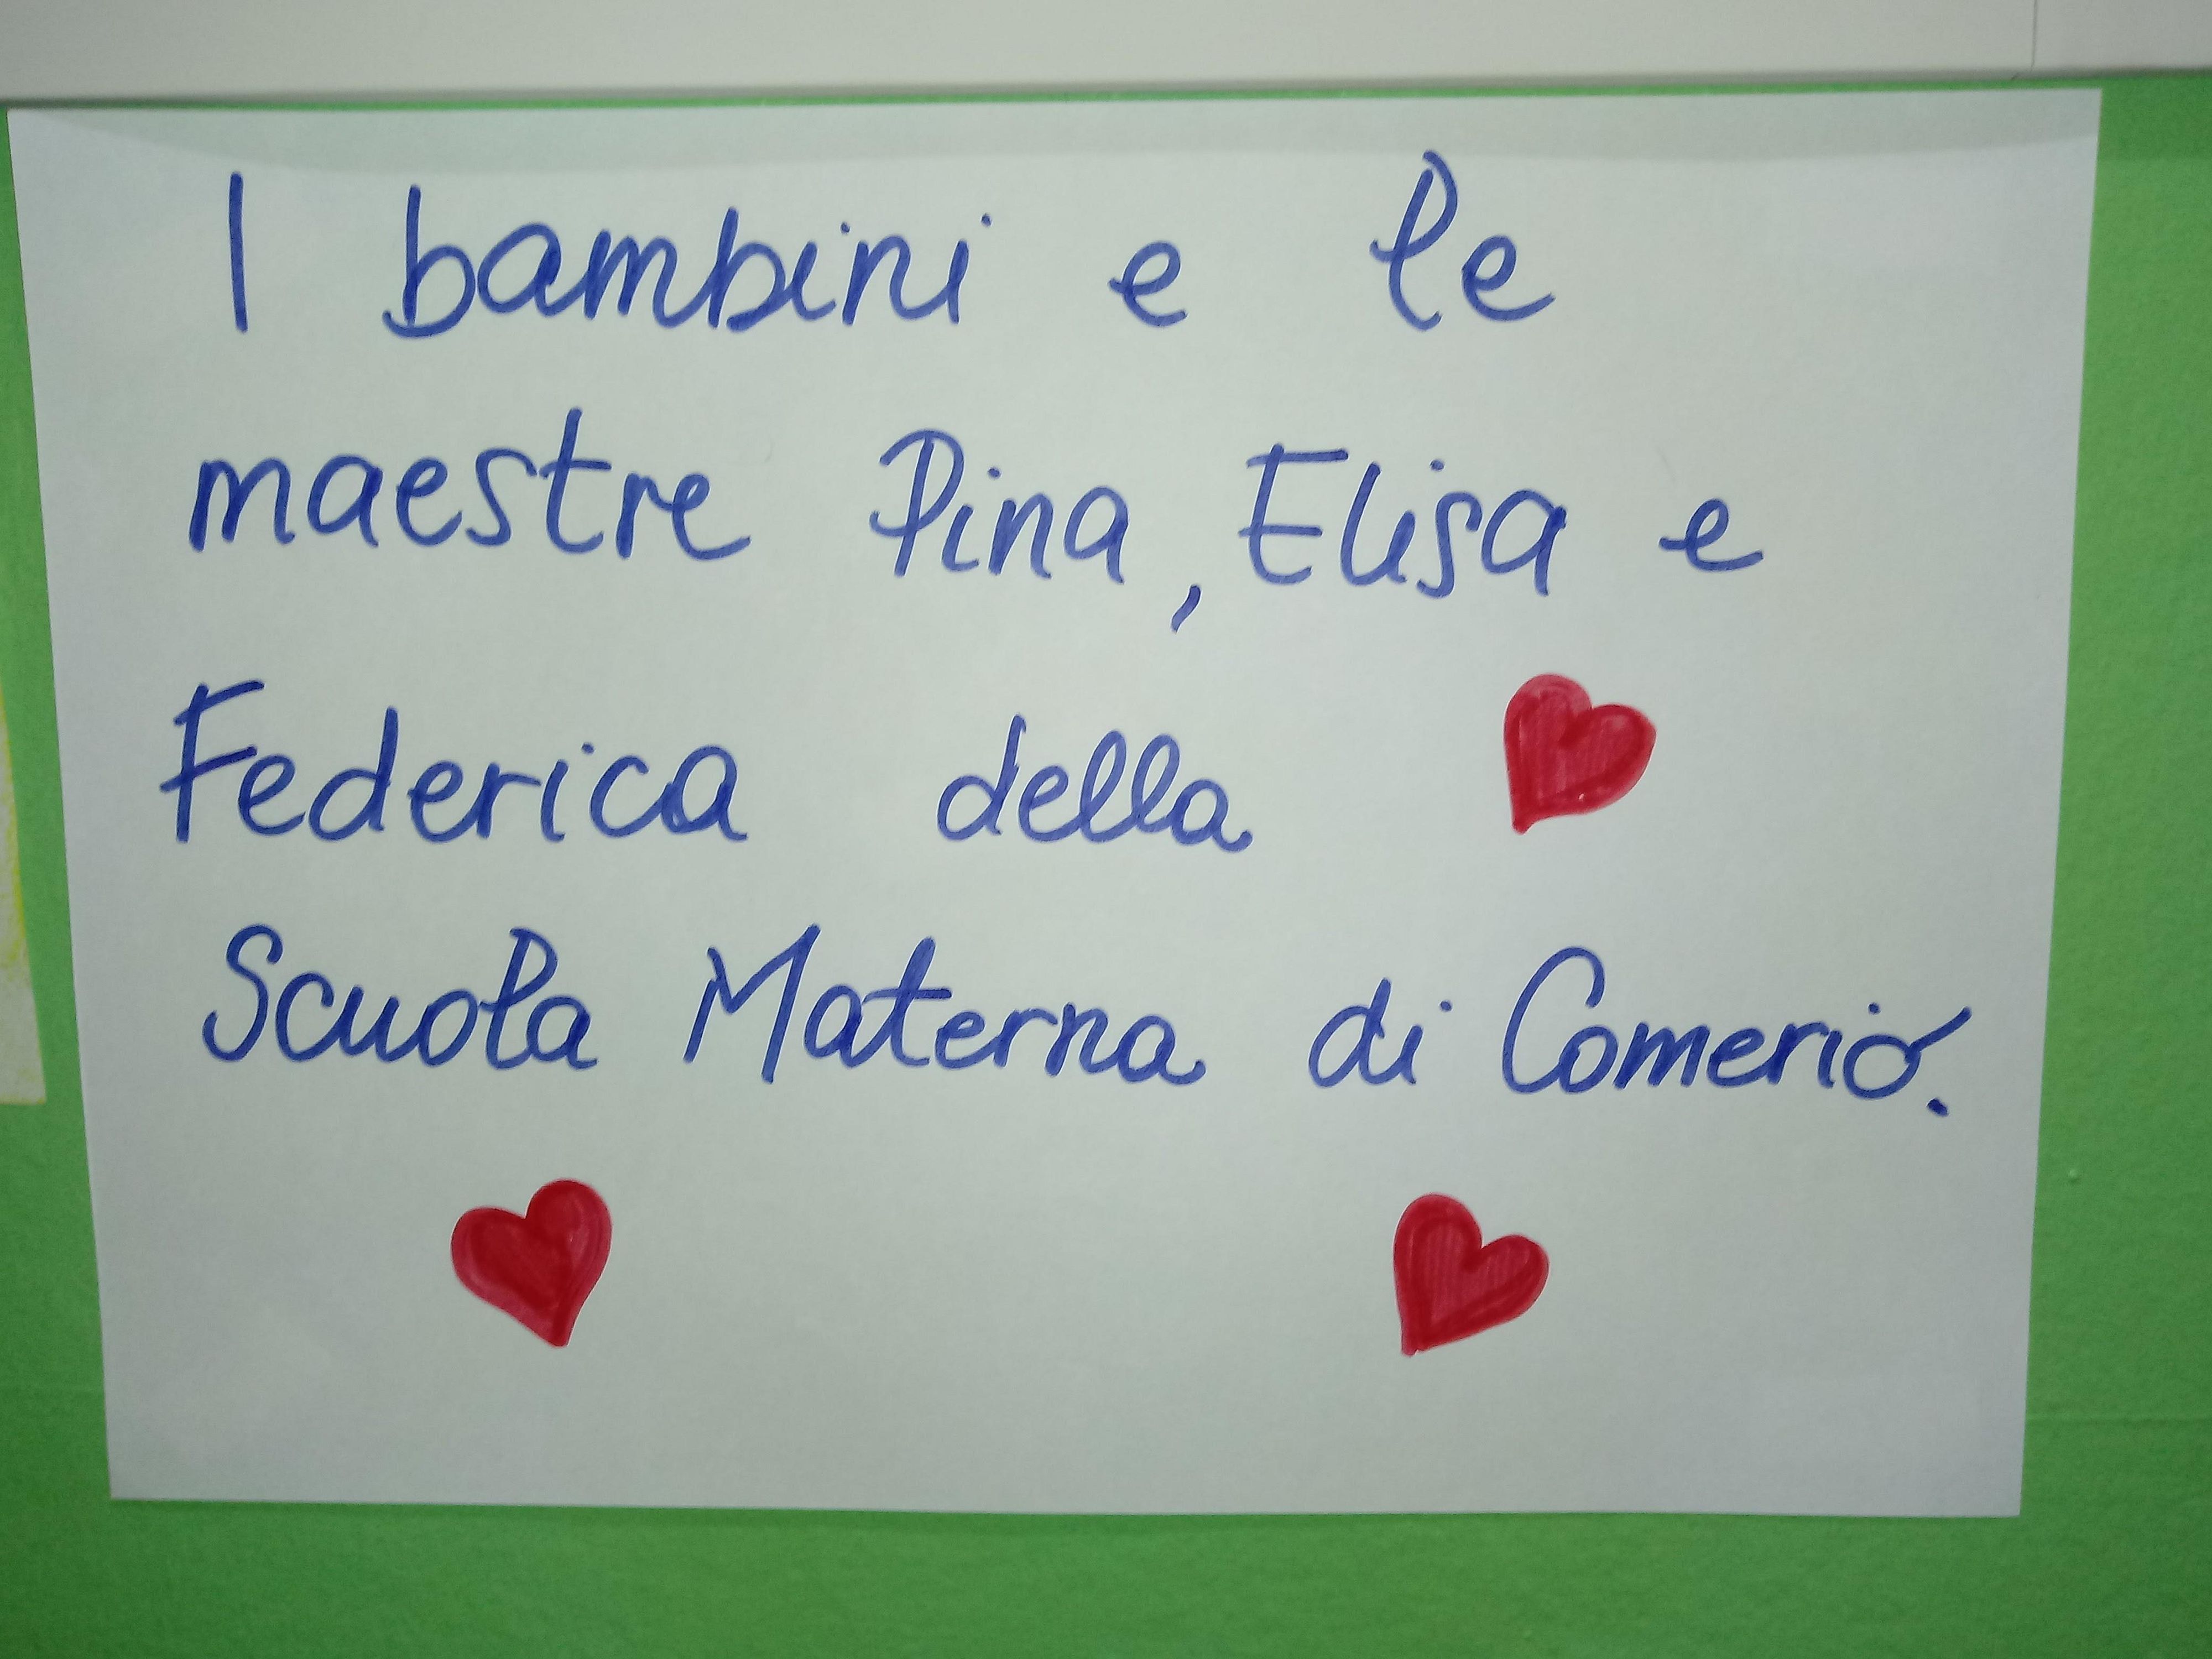 I bambini e le
maestre Pina, Elisa e
Federica della
Scuola Materna di Comerio.